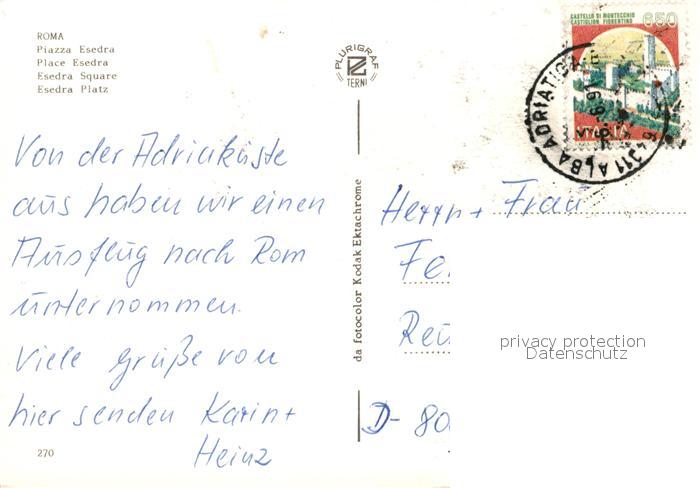 ROMA
Piazza Esedra
Place Esedra
Esedra Square
Esedra Platz
PLURIGRAF
TERNI
CASTELLO DI MONTECCHIO
CASTIGLION FIORENTINO
650
ITALIA
64011 ALBA ADRIATICA
Von der Adriaküste
aus haben wir einen
Ausflug nach Rom
unternommen.
Viele Grüße von
hier senden Karin+
Heinz
270
da fotocolor Kodak Ektachrome
Herrn + Frau
Fe
Reu
D- 80
privacy protection
Datenschutz